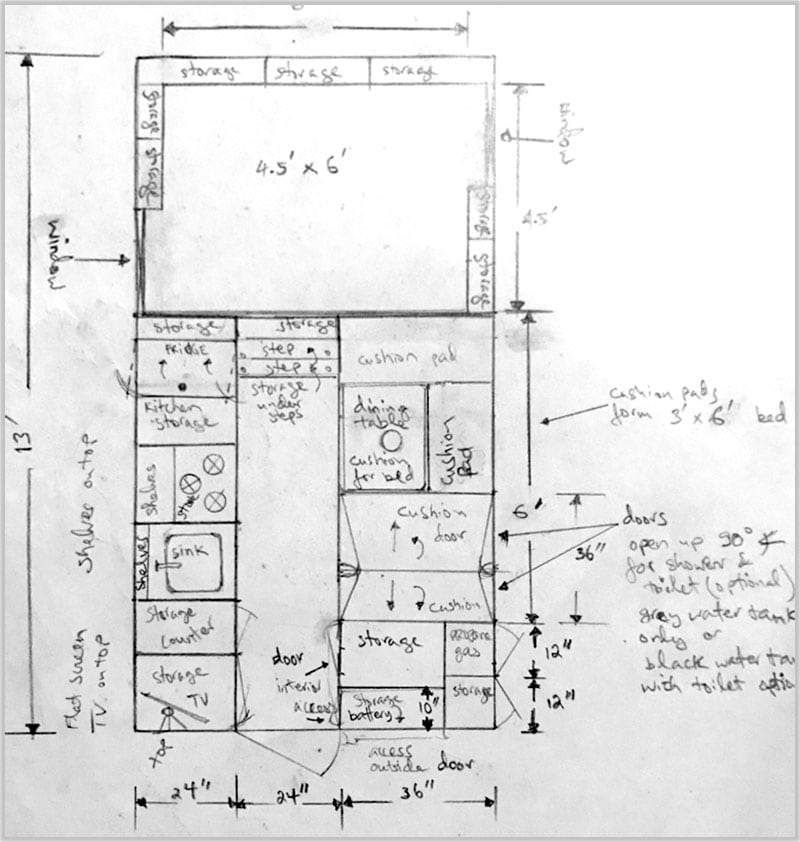 storage storage storage
storage
storage
4.5' x 6'
window
4.5'
storage
storage
window
13'
storage
storage
FRIDGE
step
step
storage
under
steps
cushion pad
Kitchen
storage
dining
table
cushion
for bed
cushion
pad
cushion pads
form 3' x 6' bed
shelves
shelves on top
cushion
door
6'
36"
doors
open up 90°
for shower &
toilet (optional)
grey water tank
only or
black water ta
with toilet optio
shelves
sink
cushion
storage
counter
storage
propane
gas
12"
door
interior
access
Flat screen
TV on top
storage
TV
storage
battery
10"
storage
12"
top
acess
outside door
24"
24"
36"